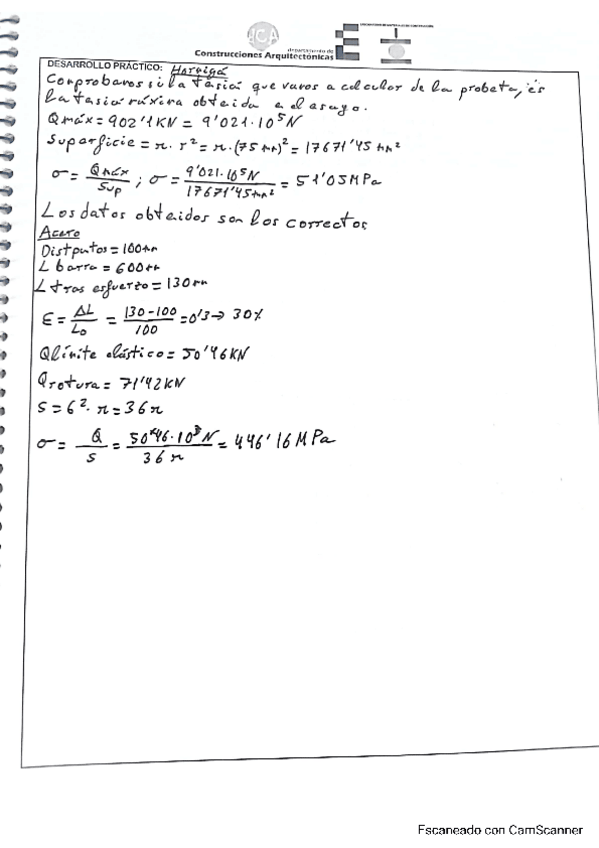 CA
departamento de
Construcciones Arquitectónicas
DESARROLLO PRÁCTICO: Hormigó
Comprobamos si la tensión que vamos a calcular de la probeta, es
la tensión máxima obtenida en el ensayo.
Qmáx = 902'1 KN = 9'021·10⁵ N
Superficie = π·r² = π·(75 mm)² = 17671'45 mm²
σ = Qmáx / Sup ; σ = 9'021·10⁵ N / 17671'45 mm² = 51'05 MPa
Los datos obtenidos son los correctos
Acero
Dist putos = 100 mm
L barra = 600 mm
L tras esfuerzo = 130 mm
Ɛ = ΔL / L₀ = 130-100 / 100 = 0'3 → 30%
Q límite elástico = 50'46 KN
Q rotura = 71'42 KN
S = 6²·π = 36π
σ = Q / S = 50'46·10³ N / 36π = 446'16 MPa
Escaneado con CamScanner